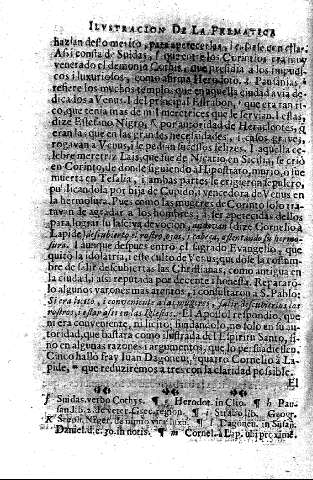 ILVSTRACION DE LA PREMATICA
hazian desto mesmo, para apetecerlas, i
Assi consta de Suidas, f que entre los Corintios era muy
venerado el demonio Cotis, que presidia a los impudi-
cos i luxuriosos, como afirma Herodoto. g Pausanias h
refiere los muchos templos que en aquella ciudad avia de-
dicados a Venus. I del principal Estrabon, i que era tan ri-
co, que tenia mas de mil meretrices que le servian. I estas,
dize Estefano Nigro, K por autoridad de Heracleotes,
eran las que en las grandes necessidades, i casos graves,
rogavan a Venus, i le pedian sucessos felizes. I aquella ce-
lebre meretriz Lais, que fue de Nicario en Sicilia, se crió
en Corinto, de donde siguiendo a Hipostrato, murió, o fue
muerta en Tesalia, i ambas partes le erigieron sepulcro,
publicandola por hija de Corinto, i vencedora de Venus en
la hermosura. Pues como las mugeres de Corinto solo tra-
tavan de agradar a los hombres, i ser apetecidas dellos
para lograr su lasciva devocion, dize Cornelio a
Lapide, rostro, i cabeça, ostentando su hermo-
sura. I aunque despues entró el sagrado Evangelio, que
quitó la idolatria, i este culto de Venus, quedose la costum-
bre de salir descubiertas las Christianas, como antigua en
la ciudad, i assi reputada por decente i honesta. Repararō-
lo algunos varones mas atentos, i consultaron a S. Pablo:
Si era licito, i conveniente a las mugeres, salir descubiertas los
rostros, i estar assi en las Iglesias. El Apostol respondio, que
ni era conveniente, ni licito, fundandolo, no solo en su au-
toridad, que bastara como ilustrada de el Espiritu Santo, si-
no en algunas razones i argumentos, que lo persuadiessen.
Cinco halló fray Iuan Dagonen; l quatro Cornelio à La-
pide, m que reduziremos a tres con la claridad possible.
El
f Suidas. verbo Cothys. ¶ g Herodot. in Clio. ¶ h Pau-
san. lib. 2. de veter. Graec. region. ¶ i Strabo lib. Geogr.
K Steph. Niger, de ¶ l Dagonen. in Susan.
Daniel. d. c. 30. in notis. ¶ m Cornel. à Lap. ubi proximè.